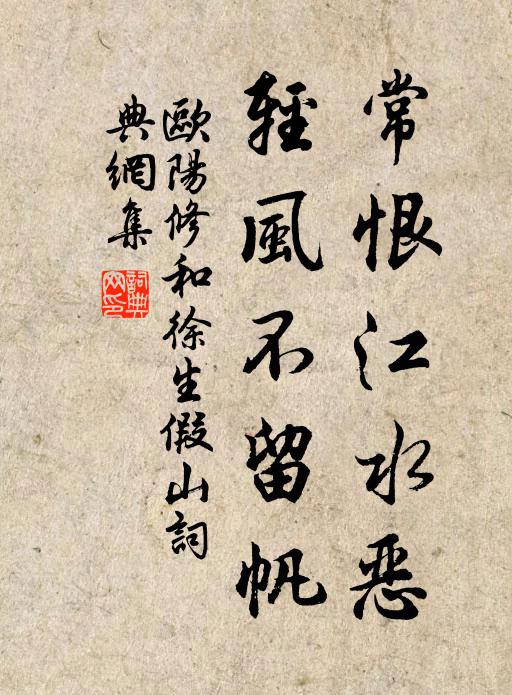 常恨江水恶
輕風不留帆
歐陽修和徐生假山詞
典網集
詞典網印